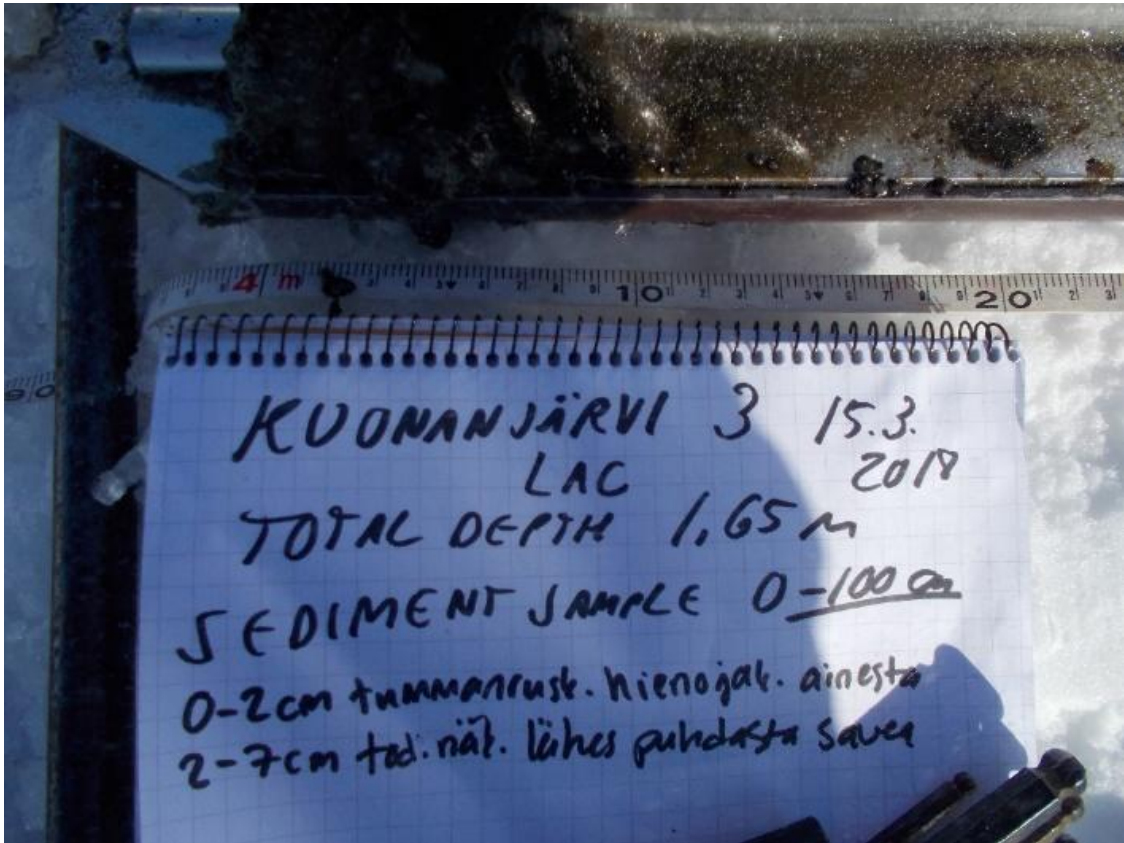 4 m 10 20
KUONANJÄRVI 3 15.3.
LAC 2018
TOTAL DEPTH 1,65 m
SEDIMENT SAMPLE 0-100 cm
0-2cm tummanrusk. hienojak. ainesta
2-7cm tod.näk. lähes puhdasta savea